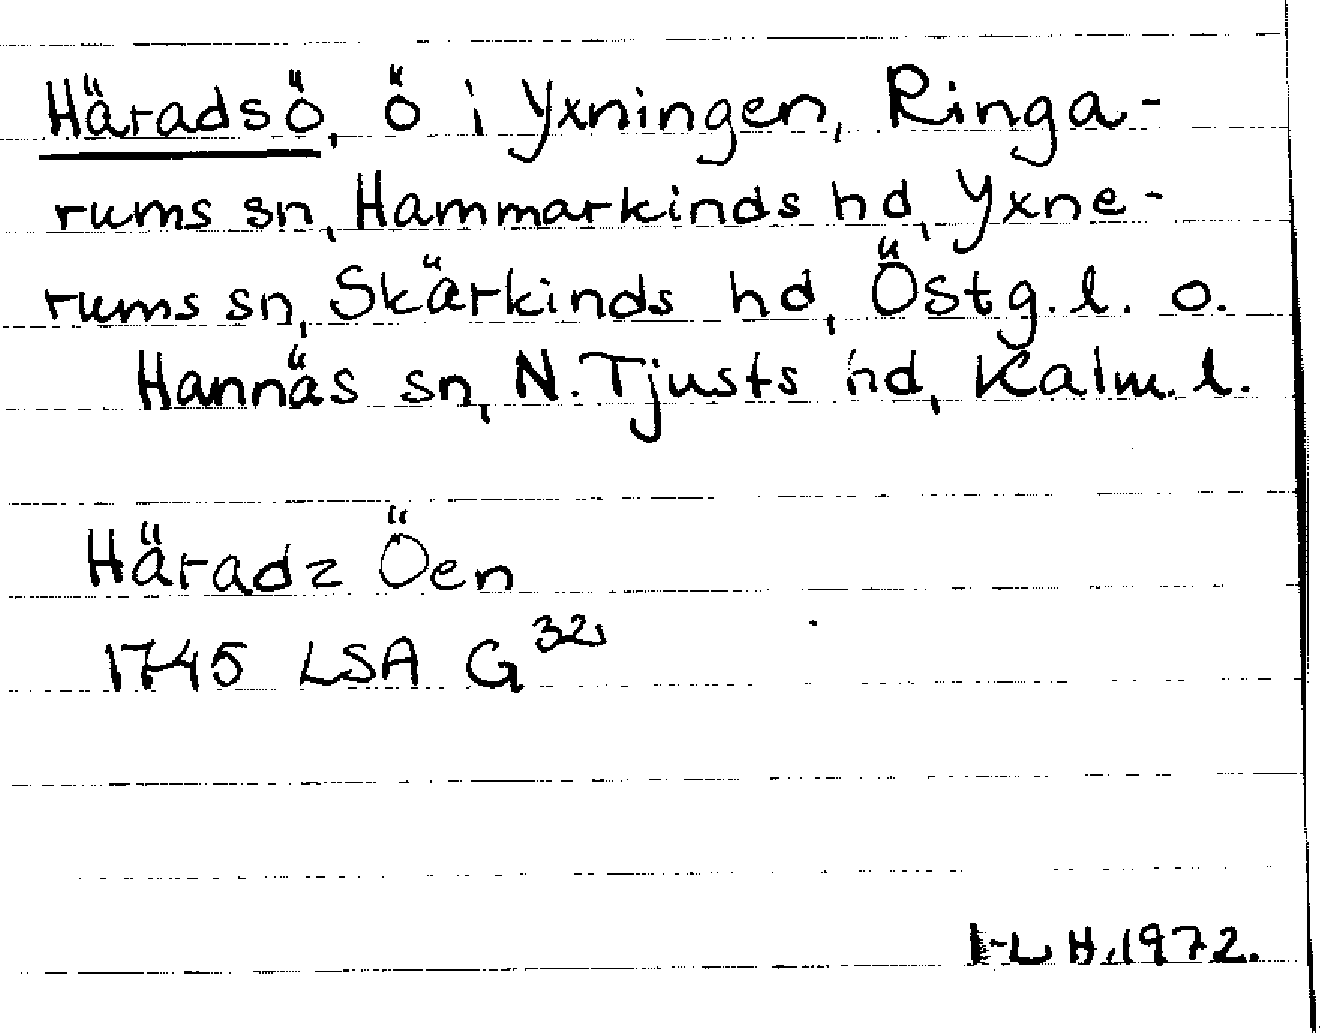 Häradsö, ö i Yxningen, Ringa-
rums sn, Hammarkinds hd, Yxne-
rums sn, Skärkinds hd, Östg. l. o.
Hannäs sn, N. Tjusts hd, Kalm. l.
Häradz Öen
1745 LSA G 32,
I-L H, 1972.